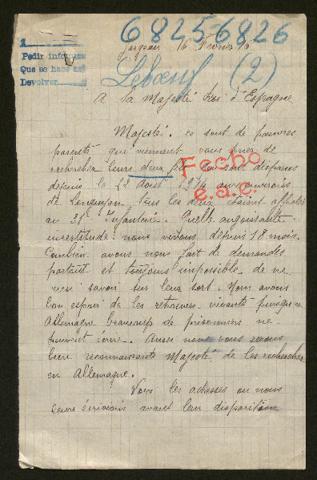 68256826
1
Pedir inform
Que se hace as
Devolver
Jargeau 16 Février
Leboeuf (2)
A Sa Majesté Roi d'Espagne
Majesté. ce sont de pauvres
parents qui viennent vous prier de
rechercher leurs deux fils qui sont disparus
depuis le 22 Août 1914 aux environs
de Longuyon. Tous les deux étaient affectés
au 31e Infanterie. Quelle angoissante
incertitude: nous vivons depuis 18 mois.
Combien avons nous fait de demandes
partout et toujours impossible de ne
rien savoir sur leur sort. Nous avons
bon espoir de les retrouver vivants puisque en
Allemagne beaucoup de prisonniers ne
peuvent écrire. Aussi nous vous serons
bien reconnaissants Majesté de les rechercher
en Allemagne.
Voici les adresses ou nous
leurs écrivions avant leur disparition
Fecho
e.a.c.